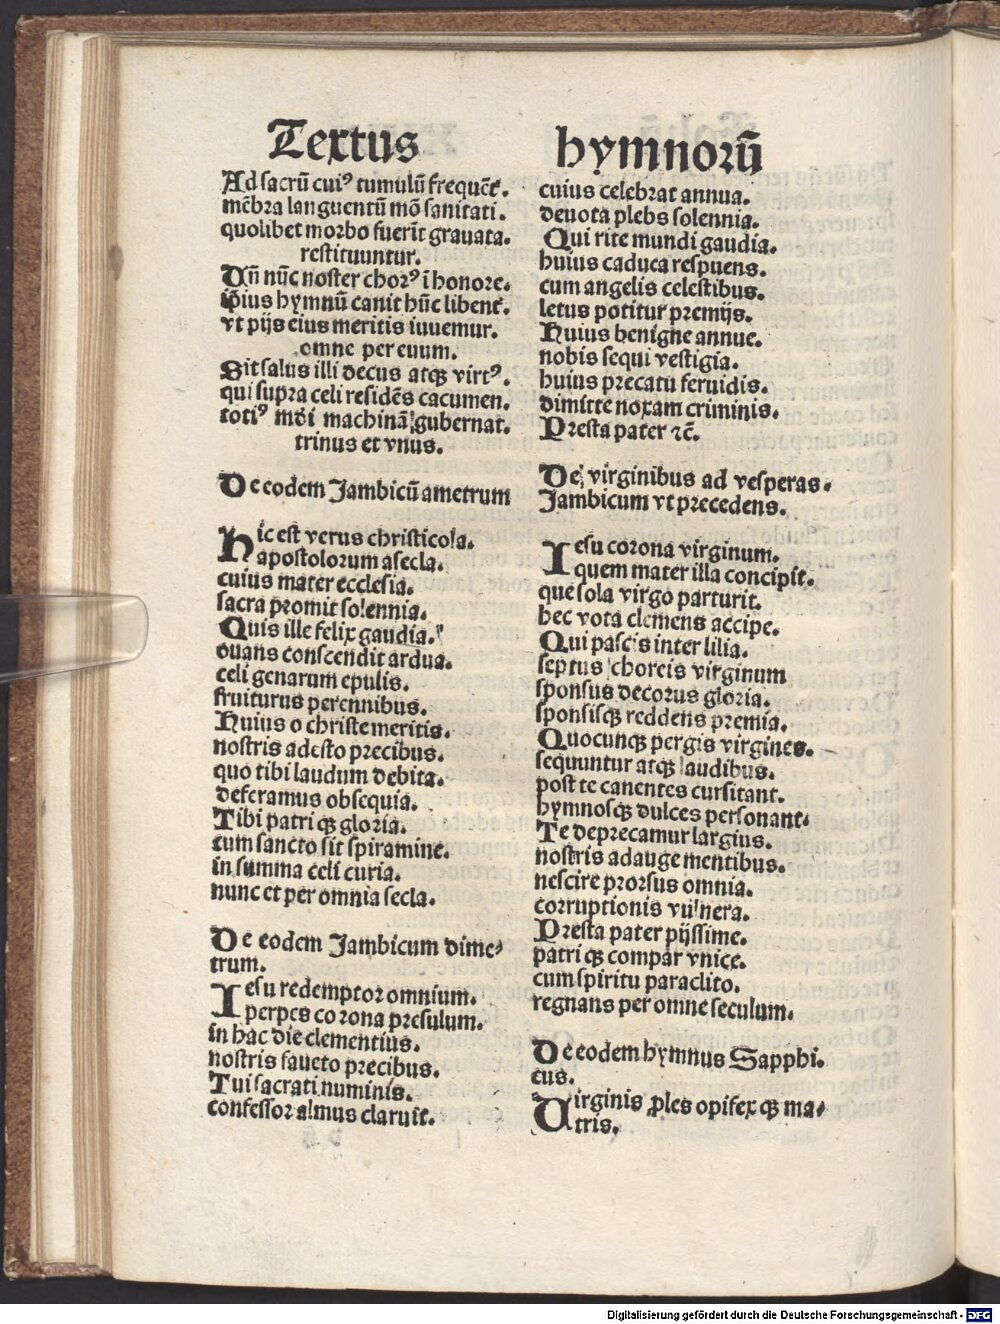 Textus hymnorū
Ad sacrū cuiꝰ tumulū frequēt̄.
mēbra languentū mō sanitati.
quolibet morbo fuerīt grauata.
restituuntur.
Vn̄ nūc noster chorꝰ ī honore.
ip̄ius hymnū canit hūc libent̄.
vt pijs eius meritis iuuemur.
omne per euum.
Sit salus illi decus atqꝫ virtꝰ.
qui supra celi residēs cacumen.
totiꝰ mūdi machinā gubernat.
trinus et vnus.
De eodem Jambicū ametrum
Hic est verus christicola.
apostolorum asecla.
cuius mater ecclesia.
sacra promit solennia.
Quis ille felix gaudia.
ouans conscendit ardua.
celi genarum epulis.
fruiturus perennibus.
Huius o christe meritis.
nostris adesto precibus.
quo tibi laudum debita.
deferamus obsequia.
Tibi patri qꝫ gloria.
cum sancto sit spiramine.
in summa celi curia.
nunc et per omnia secla.
De eodem Jambicum dime⸗
trum.
Iesu redemptor omnium.
perpes corona presulum.
in hac die clementius.
nostris faueto precibus.
Tui sacrati numinis.
confessor almus claruit.
cuius celebrat annua.
deuota plebs solennia.
Qui rite mundi gaudia.
huius caduca respuens.
cum angelis celestibus.
letus potitur premijs.
Huius benigne annue.
nobis sequi vestigia.
huius precatu feruidis.
dimitte noxam criminis.
Presta pater ⁊c̄.
De virginibus ad vesperas.
Jambicum vt precedens.
Iesu corona virginum.
quem mater illa concipit.
que sola virgo parturit.
hec vota clemens accipe.
Qui pascis inter lilia.
septus choreis virginum
sponsus decorus gloria.
sponsisqꝫ reddens premia.
Quocunqꝫ pergis virgines.
sequuntur atqꝫ laudibus.
post te canentes cursitant.
hymnosqꝫ dulces personant.
Te deprecamur largius.
nostris adauge mentibus.
nescire prorsus omnia.
corruptionis vulnera.
Presta pater pijssime.
patri qꝫ compar vnice.
cum spiritu paraclito.
regnans per omne seculum.
De eodem hymnus Sapphi.
cus.
Virginis ꝓles opifex qꝫ ma⸗
tris.
Digitalisierung gefördert durch die Deutsche Forschungsgemeinschaft - DFG